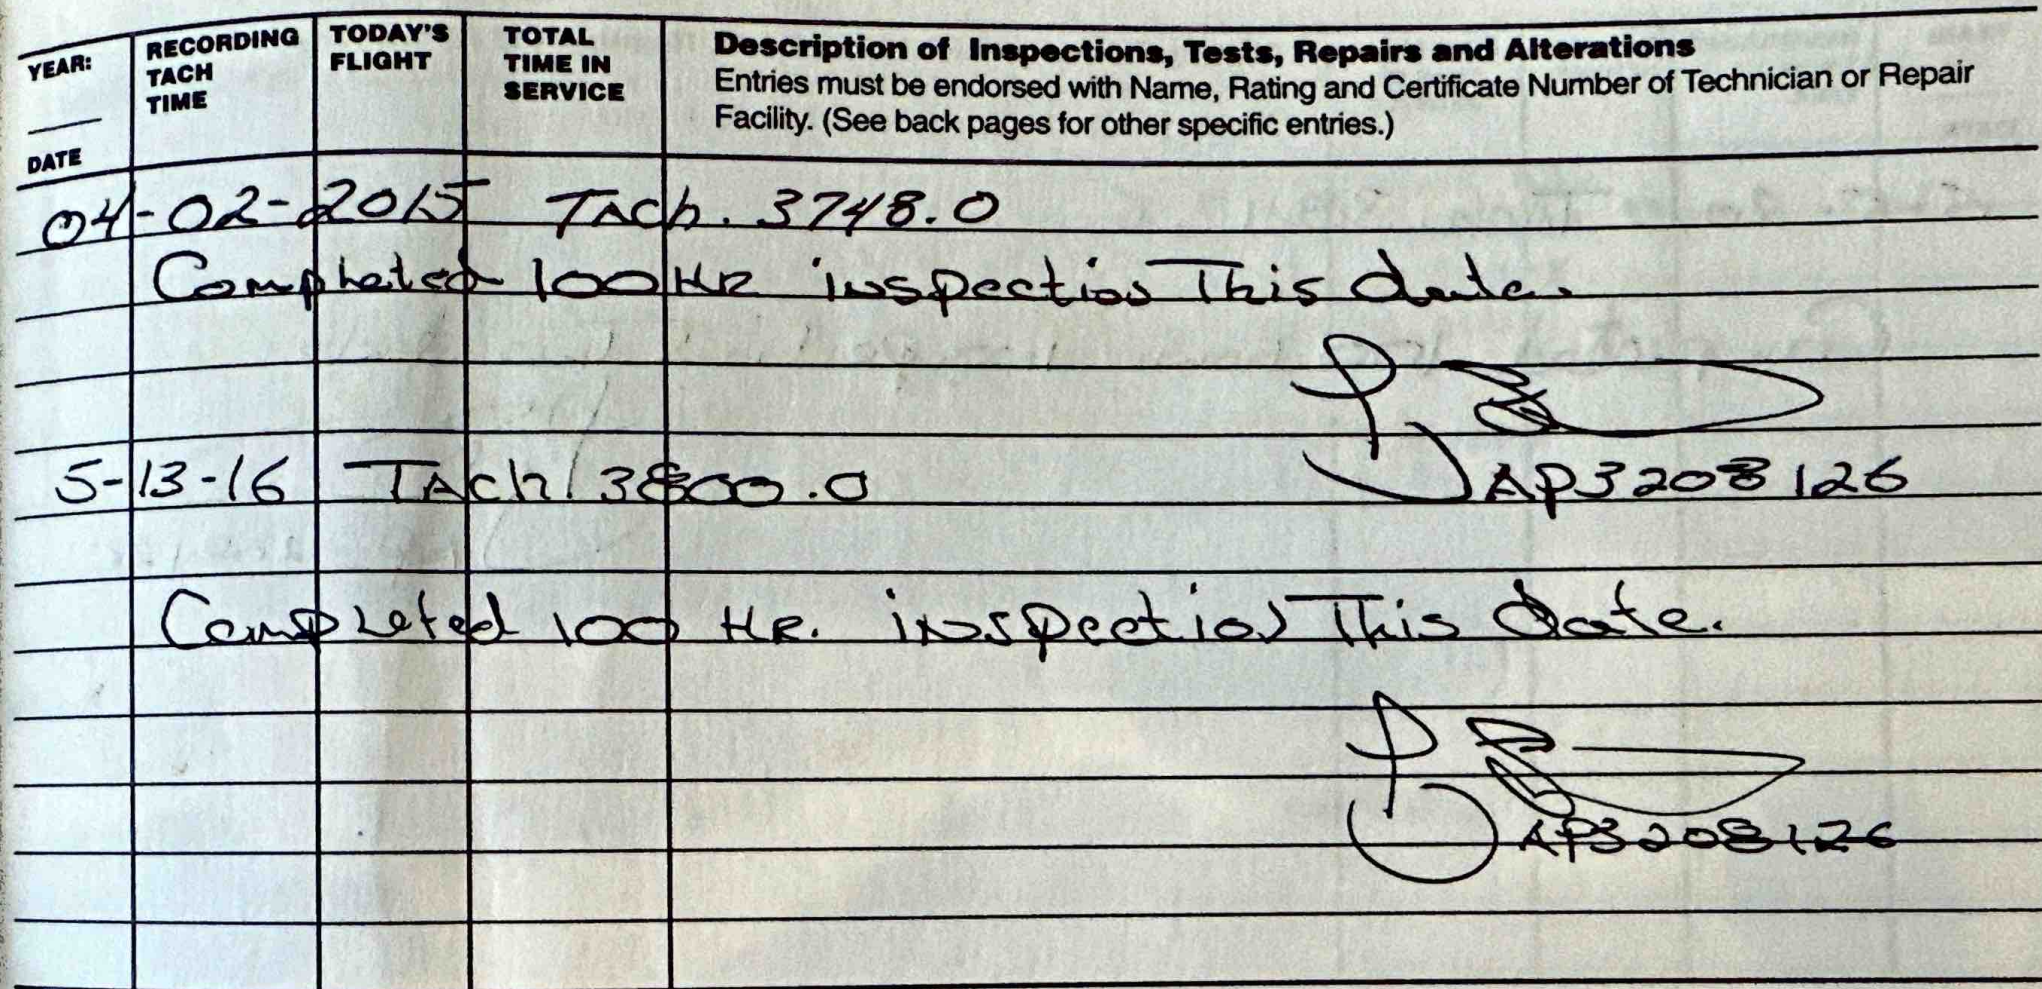 YEAR:
DATE
RECORDING
TACH
TIME
TODAY'S
FLIGHT
TOTAL
TIME IN
SERVICE
Description of Inspections, Tests, Repairs and Alterations
Entries must be endorsed with Name, Rating and Certificate Number of Technician or Repair
Facility. (See back pages for other specific entries.)
04-02-2015 TAch. 3748.0
Completed 100 HR inspection This date.
5-13-16 TAch 3800.0
AP3208126
Completed 100 HR. inspection This date.
AP3208126